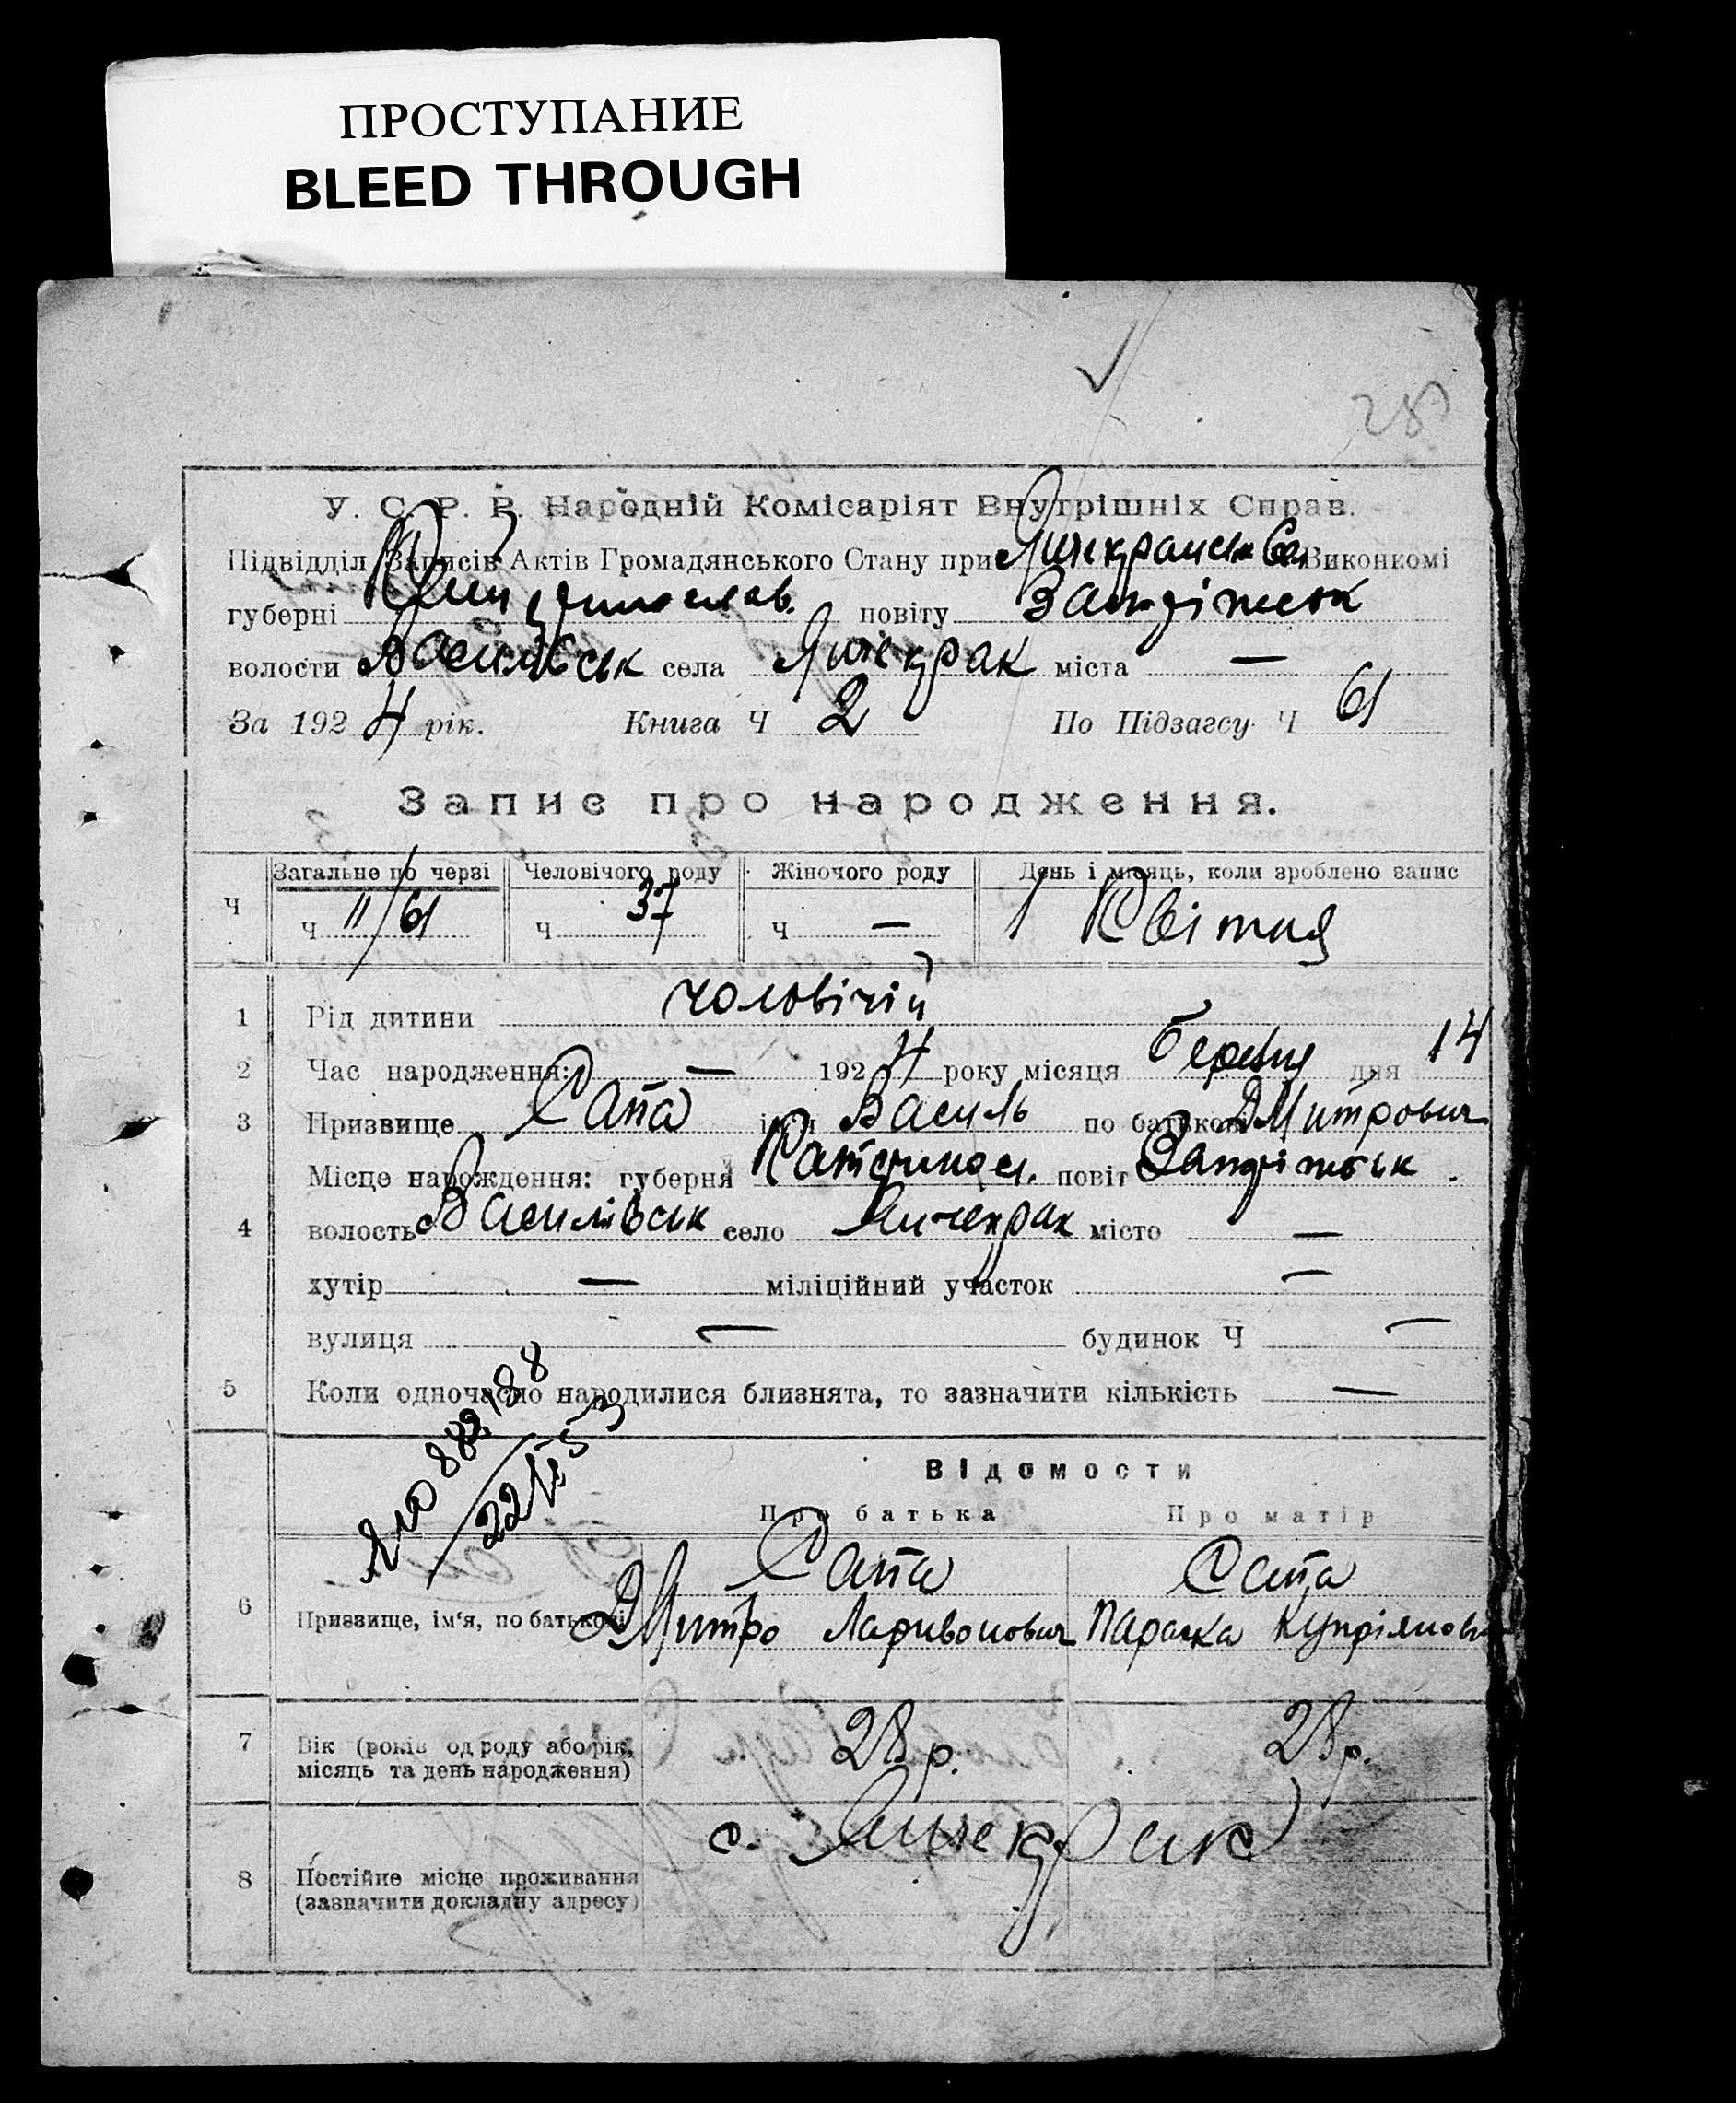 ПРОСТУПАНИЕ
BLEED THROUGH
У. С. Р. Р. Народній Комісаріят Внутрішніх Справ.
Підвідділ Записів Актів Громадянського Стану при Янчекранськ Сел Виконкомі
губерні повіту Запоріжськ
волости Василівськ села Янчекрак міста —
За 1924 рік. Книга Ч 2 По Підзагсу Ч 61
Запис про народження.
Загальне по черзі Человічого роду Жіночого роду День і місяць, коли зроблено запис
Ч ч 11/61 ч 37 ч — 1 Квітня
1 Рід дитини чоловічій
2 Час народження: — 1924 року місяця березня дня 14
3 Призвище Сапа ім'я Василь по батькові Дмитрович
Місце нарождення: губерня Катеринос. повіт Запоріжськ.
4 волость Василівськ село Янчекрак місто —
хутір — міліційний участок —
вулиця — будинок Ч —
5 Коли одночасно народилися близнята, то зазначити кількість —
Відомости
Про батька Про матір
6 Призвище, ім'я, по батькові Сапа Сапа
Дмитро Ларивонович Параска Купріяновн
7 Вік (років од роду або рік, місяць та день народження) 28 р. 28 р.
с. Янчекрак
8 Постійне місце проживання
(зазначити докладну адресу)